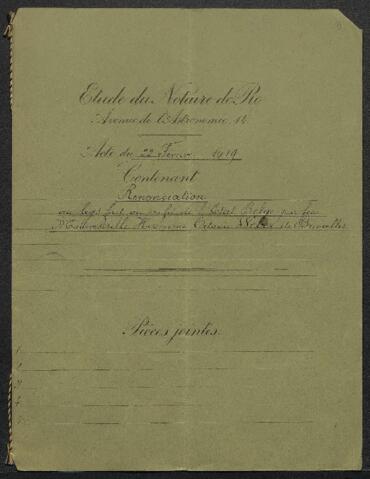 Etude du Notaire de Ro
Avenue de l'Astronomie, 14
Acte du 22 Février 1919
Contenant
Renonciation
au legs fait au profit de l'Etat Belge par feu
de Bruxelles
Pièces jointes.
1
2
3
4
5